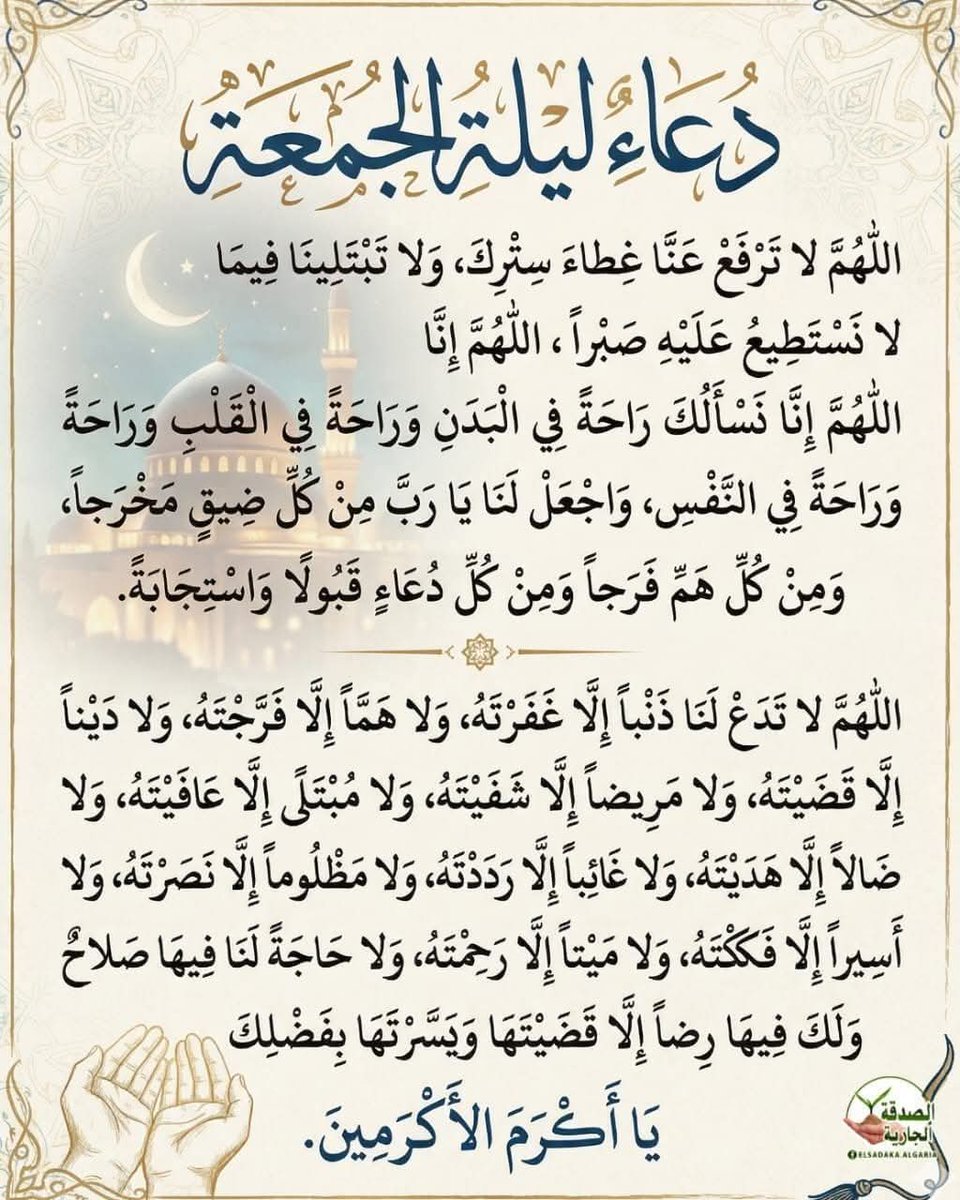 دُعَاءُ لَيْلَةِ الجُمُعَةِ
اللّٰهُمَّ لا تَرْفَعْ عَنَّا غِطاءَ سِتْرِكَ، وَلا تَبْتَلِينَا فِيمَا
لا نَسْتَطِيعُ عَلَيْهِ صَبْراً ، اللّٰهُمَّ إِنَّا
اللّٰهُمَّ إِنَّا نَسْأَلُكَ رَاحَةً فِي الْبَدَنِ وَرَاحَةً فِي الْقَلْبِ وَرَاحَةً
وَرَاحَةً فِي النَّفْسِ، وَاجْعَلْ لَنَا يَا رَبَّ مِنْ كُلِّ ضِيقٍ مَخْرَجاً،
وَمِنْ كُلِّ هَمٍّ فَرَجاً وَمِنْ كُلِّ دُعَاءٍ قَبُولًا وَاسْتِجَابَةً.
اللّٰهُمَّ لا تَدَعْ لَنَا ذَنْباً إِلَّا غَفَرْتَهُ، وَلا هَمَّاً إِلَّا فَرَّجْتَهُ، وَلا دَيْناً
إِلَّا قَضَيْتَهُ، وَلا مَرِيضاً إِلَّا شَفَيْتَهُ، وَلا مُبْتَلًى إِلَّا عَافَيْتَهُ، وَلا
ضَالاً إِلَّا هَدَيْتَهُ، وَلا غَائِباً إِلَّا رَدَدْتَهُ، وَلا مَظْلُوماً إِلَّا نَصَرْتَهُ، وَلا
أَسِيراً إِلَّا فَكَكْتَهُ، وَلا مَيْتاً إِلَّا رَحِمْتَهُ، وَلا حَاجَةً لَنَا فِيهَا صَلاحٌ
وَلَكَ فِيهَا رِضاً إِلَّا قَضَيْتَهَا وَيَسَّرْتَهَا بِفَضْلِكَ
يَا أَكْرَمَ الأَكْرَمِينَ.
الصدقة
الجارية
ELSADAKA.ALGARIA